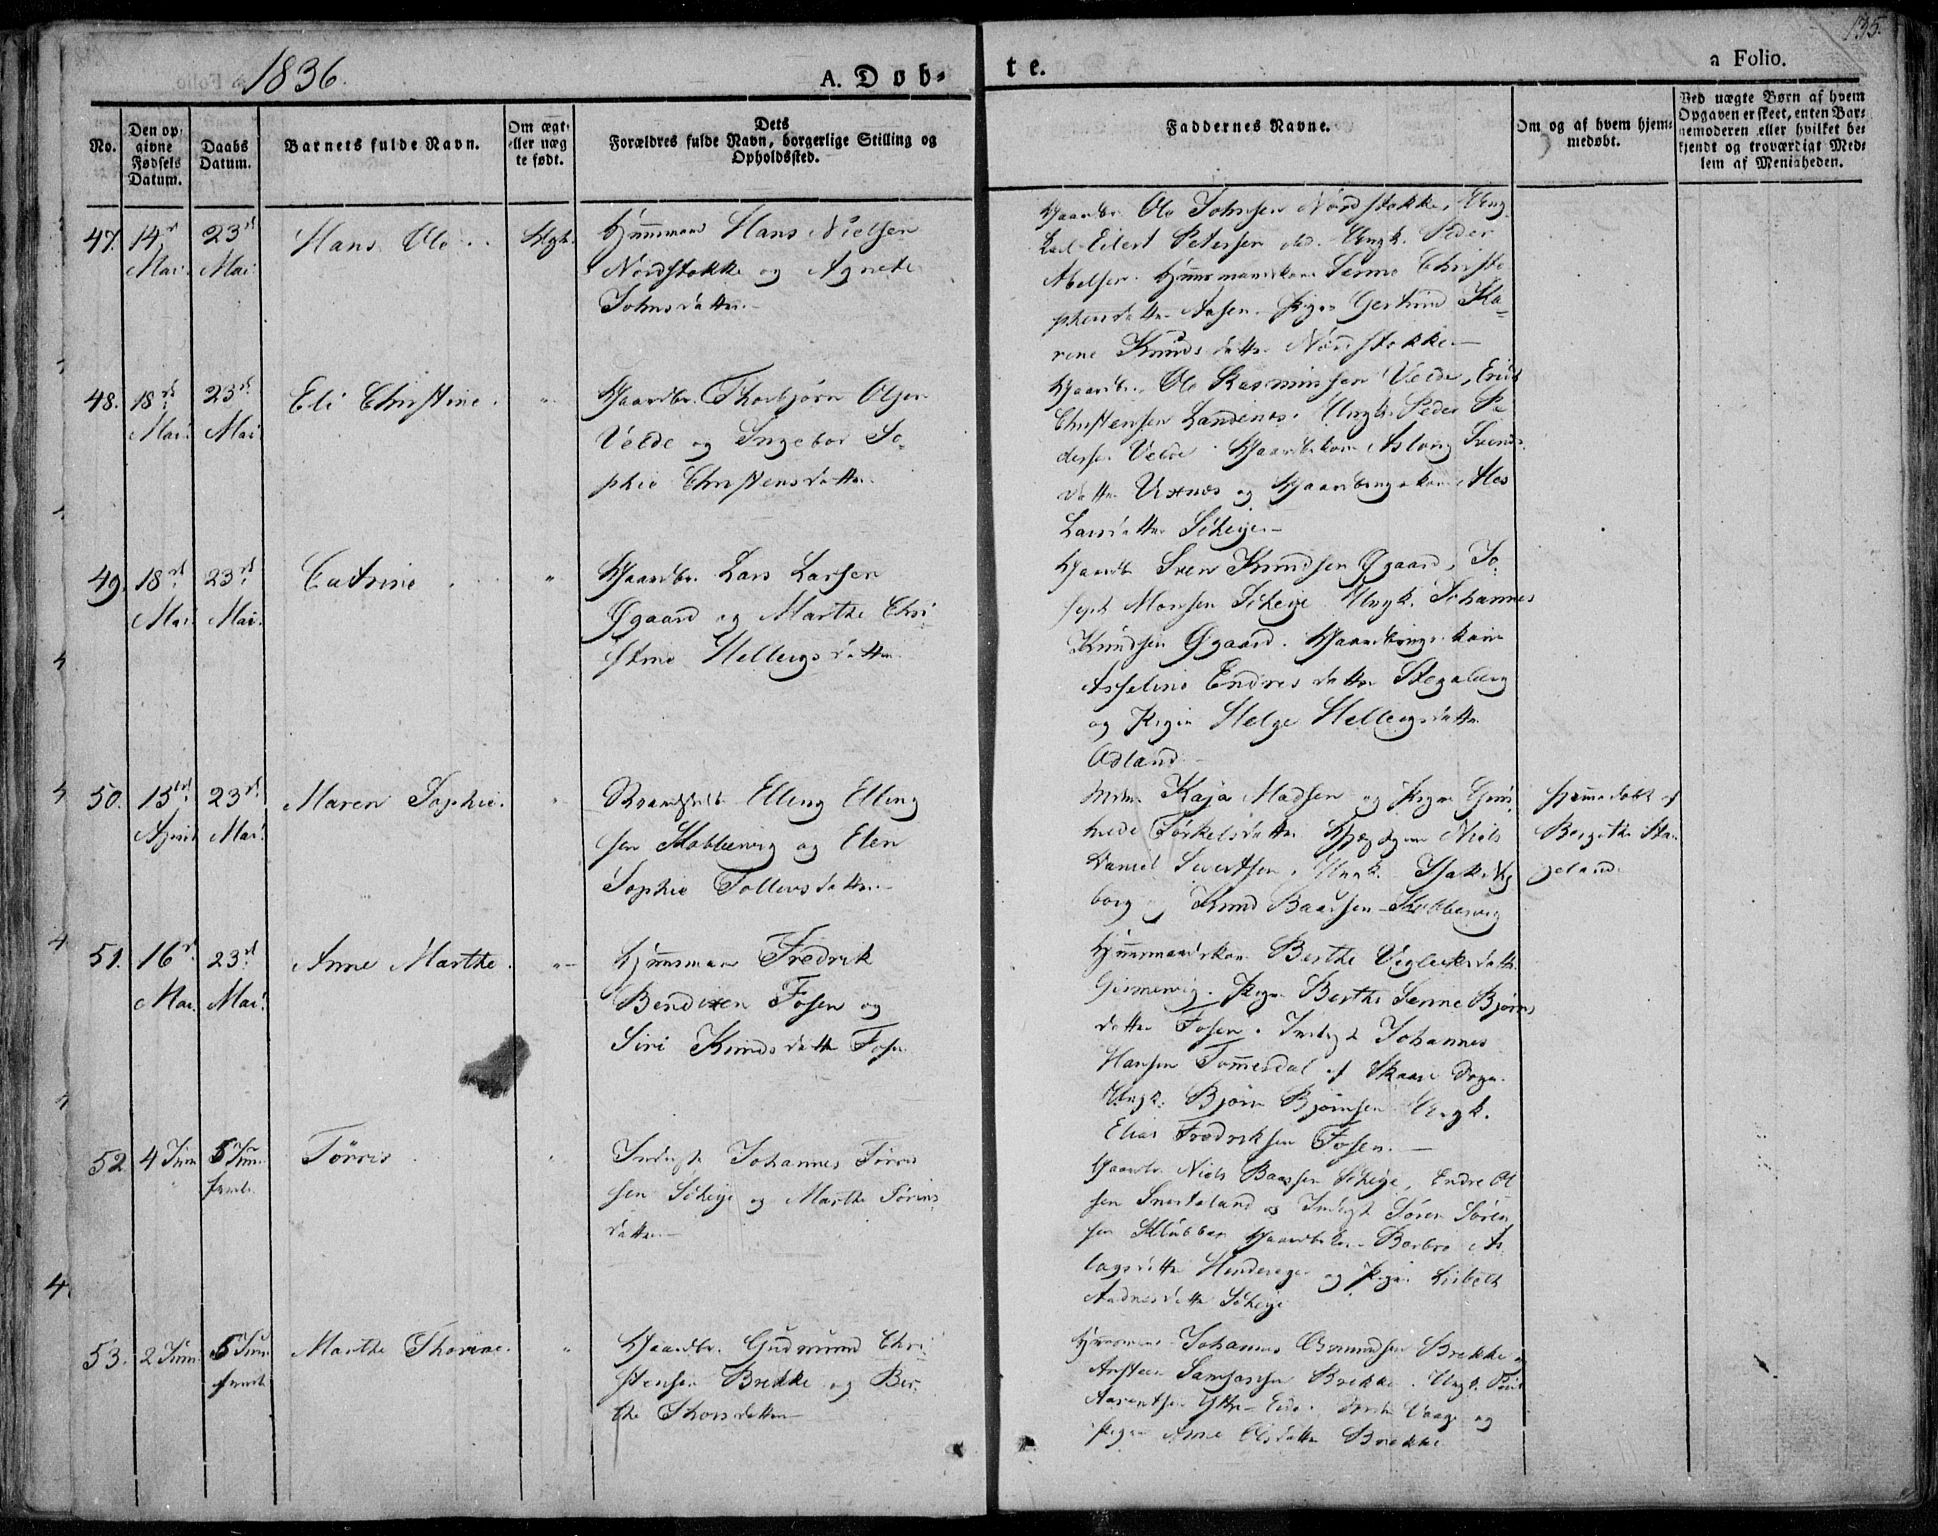 1836.
A. Døb-
te.
135.
a Folio.
No.
Den op-
givne
Fødsels
Datum.
Daabs
Datum.
Barnets fulde Navn.
Om ægt
eller næg
te født.
Dets
Forældres fulde Navn, borgerlige Stilling og
Opholdssted.
Faddernes Navne.
Om og af hvem hjem-
medøbt.
Ved uægte Børn af hvem
Opgaven er skeet, enten Bar-
nemoderen eller hvilket be-
kjendt og troværdigt Med-
lem af Menigheden.
47. 14 Mai. 23 Mai. Hans Ole
Huusmand Hans Nielsen
Nordstokke og Agnete
Johnsdatter
Gaardbr. Ole Johnsen Nordstokke, Ung
karl Eilert Petersen Ungk. Peder
Abelsen. Huusmandskone Serine Christo
phersdatter Aasen. Pigen Gertrud Ka-
rene Knudsdatter Nordstokke
48. 18 Mai. 23 Mai. Eli Christine
Gaardbr. Thorbjørn Olsen
Velde og Ingebor So-
phie Christensdatter
Gaardbr. Ole Rasmussen Velde, Erik
Christensen Landenes. Ungk. Peder Pe
dersen Velde. Gaardbr.kone Aslaug Svends
datter Vestnes og Gaardbrugerkone
Larsdatter Sikeige
49. 18 Mai. 23 Mai. Catrine
Gaardbr. Lars Larsen
Øgaard og Marthe Chri
stine Hellevigsdatter
Gaardbr. Sven Knudsen Øgaard, Jo
seph Monsen Sikeige Ungk. Johannes
Knudsen Øgaard. Gaardbrugerkone
Asseline Endresdatter Stegaberg
og Pigen Helge Hellevigsdatter
Odland
50. 15 April 23 Mai. Maren Sophie.
Strandsidder Elling Elling
sen Kobbervig og Elen
Sophie Tollevsdatter
Kaja Madsen og Pigen Gun
hilde Torkelsdatter Niels
Daniel Sivertsen, Ungk.
borg og Knud Baarsen Kobbervig
Hjemmedøbt af
Bergithe Sta
geland
51. 16 Mai. 23 Mai. Anne Marthe.
Huusmand Fredrik
Bendixen Fosen og
Siri Knudsdatter Fosen
Huusmandskone Berthe Vigleiksdatter
Gismervig. Pigen Berthe Serine Bjørns
datter Fosen. Inderst Johannes
Hansen Tommerdal af Skaare Sogn.
Ungk. Bjørn Bjørnsen Ungk.
Elias Fredriksen Fosen.
52 4 Juni 5 Juni Tørres
Inderst Johannes Tørres
sen Sikeige og Marthe Tørris
datter
Gaardbr. Niels Baarsen Sikeige, Endre Ol
sen Snerteland og Inderst Søren Søren
sen Klubben Gaardbr.kone Barbro As
lagsdatter og Pigen Lisbeth
Andersdatter Sikeige
53. 2 Juni 5 Juni Marthe Thorine.
Gaardbr. Gudmund Chri
stensen Brekke og Ber-
the Thorsdatter
Huusmand Johannes Osmundsen Brekke
Arsteen Samsonsen Brekke. Ungk.
Aarentsen Ytre-Eide. Vaage og
Pigen Anne Olsdatter Brekke